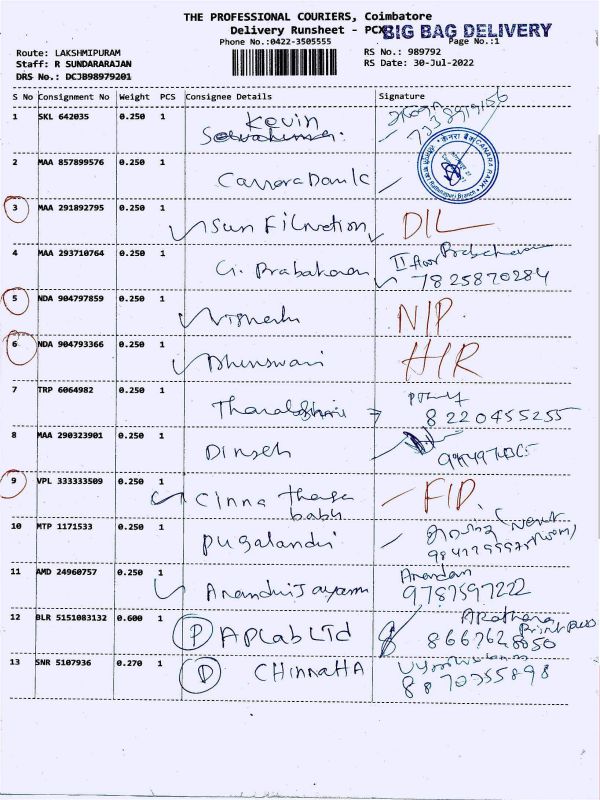 THE PROFESSIONAL COURIERS, Coimbatore
Delivery Runsheet - PCX BIG BAG DELIVERY
Phone No.:0422-3505555 Page No.:1
Route: LAKSHMIPURAM RS No.: 989792
Staff: R SUNDARARAJAN RS Date: 30-Jul-2022
DRS No.: DCJB98979201
S No Consignment No Weight PCS Consignee Details Signature
1 SKL 642035 0.250 1 Kevin
7338919156
2 MAA 857899576 0.250 1
केनरा बैंक CANARA BANK
3 MAA 291892795 0.250 1 Sun Filtration DIL
4 MAA 293710764 0.250 1 G. Prabakaran II floor
7825870284
5 NDA 904797859 0.250 1 Vignesh NIP
6 NDA 904793366 0.250 1 HIR
7 TRP 6064982 0.250 1
8220455255
8 MAA 290323901 0.250 1 Dinseh
9 VPL 333333509 0.250 1 Cinna FID
babu
10 MTP 1171533 0.250 1 Pugalandhi
11 AMD 24960757 0.250 1 Anandan
9787597222
12 BLR 5151083132 0.600 1 P APLab LTd
13 SNR 5107936 0.270 1 D CHinnaHA
8870355898